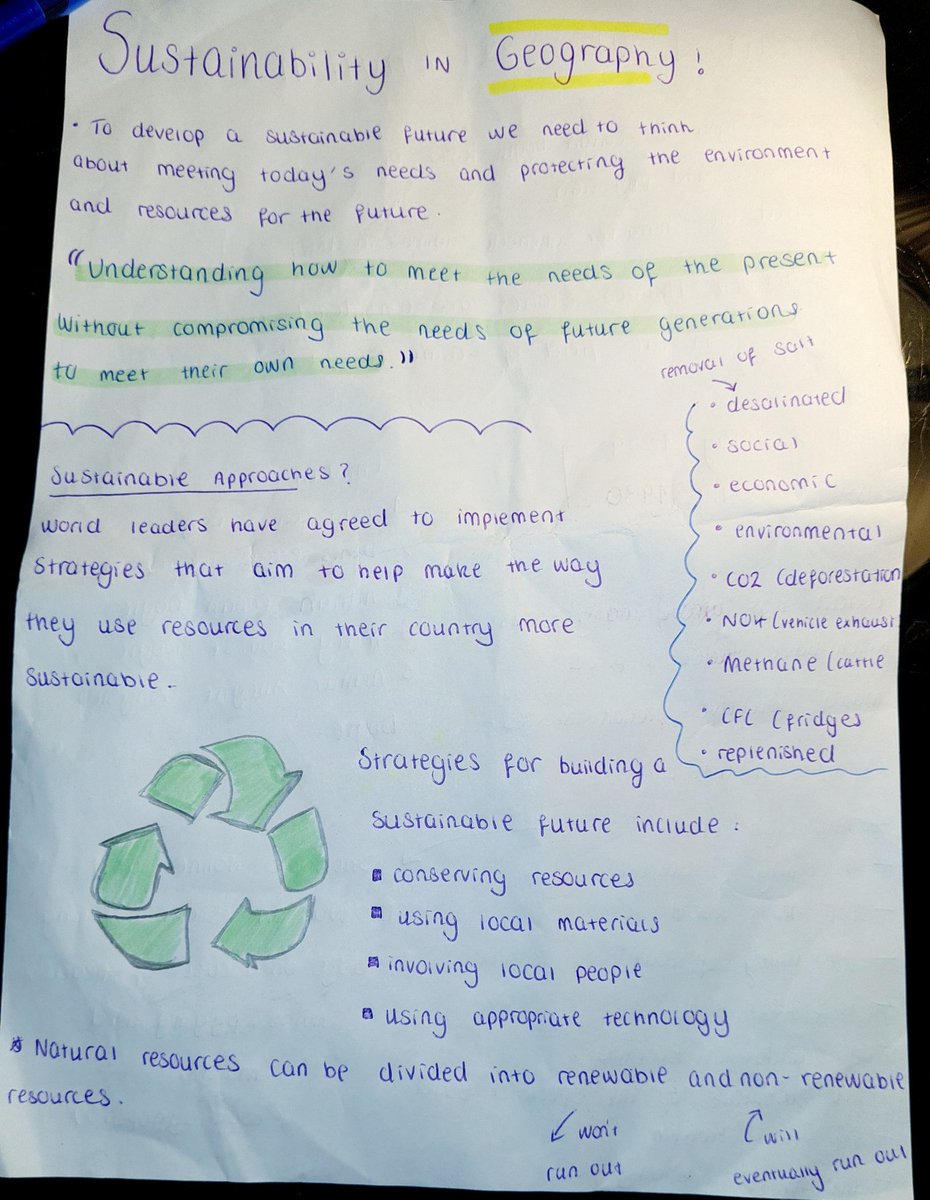 Sustainability in Geography!
• To develop a sustainable future we need to think
about meeting today's needs and protecting the environment
and resources for the future.
"Understanding how to meet the needs of the present
without compromising the needs of future generations
to meet their own needs."
removal of salt
• desalinated
• social
• economic
• environmental
• CO2 (deforestation
• NOx (vehicle exhaust
• Methane (cattle
• CFC (fridges
• replenished
Sustainable Approaches?
World leaders have agreed to implement
strategies that aim to help make the way
they use resources in their country more
sustainable.
Strategies for building a
sustainable future include:
▪ conserving resources
▪ using local materials
▪ involving local people
▪ using appropriate technology
* Natural resources can be divided into renewable and non-renewable
resources.
↙ won't
run out
↗ will
eventually run out